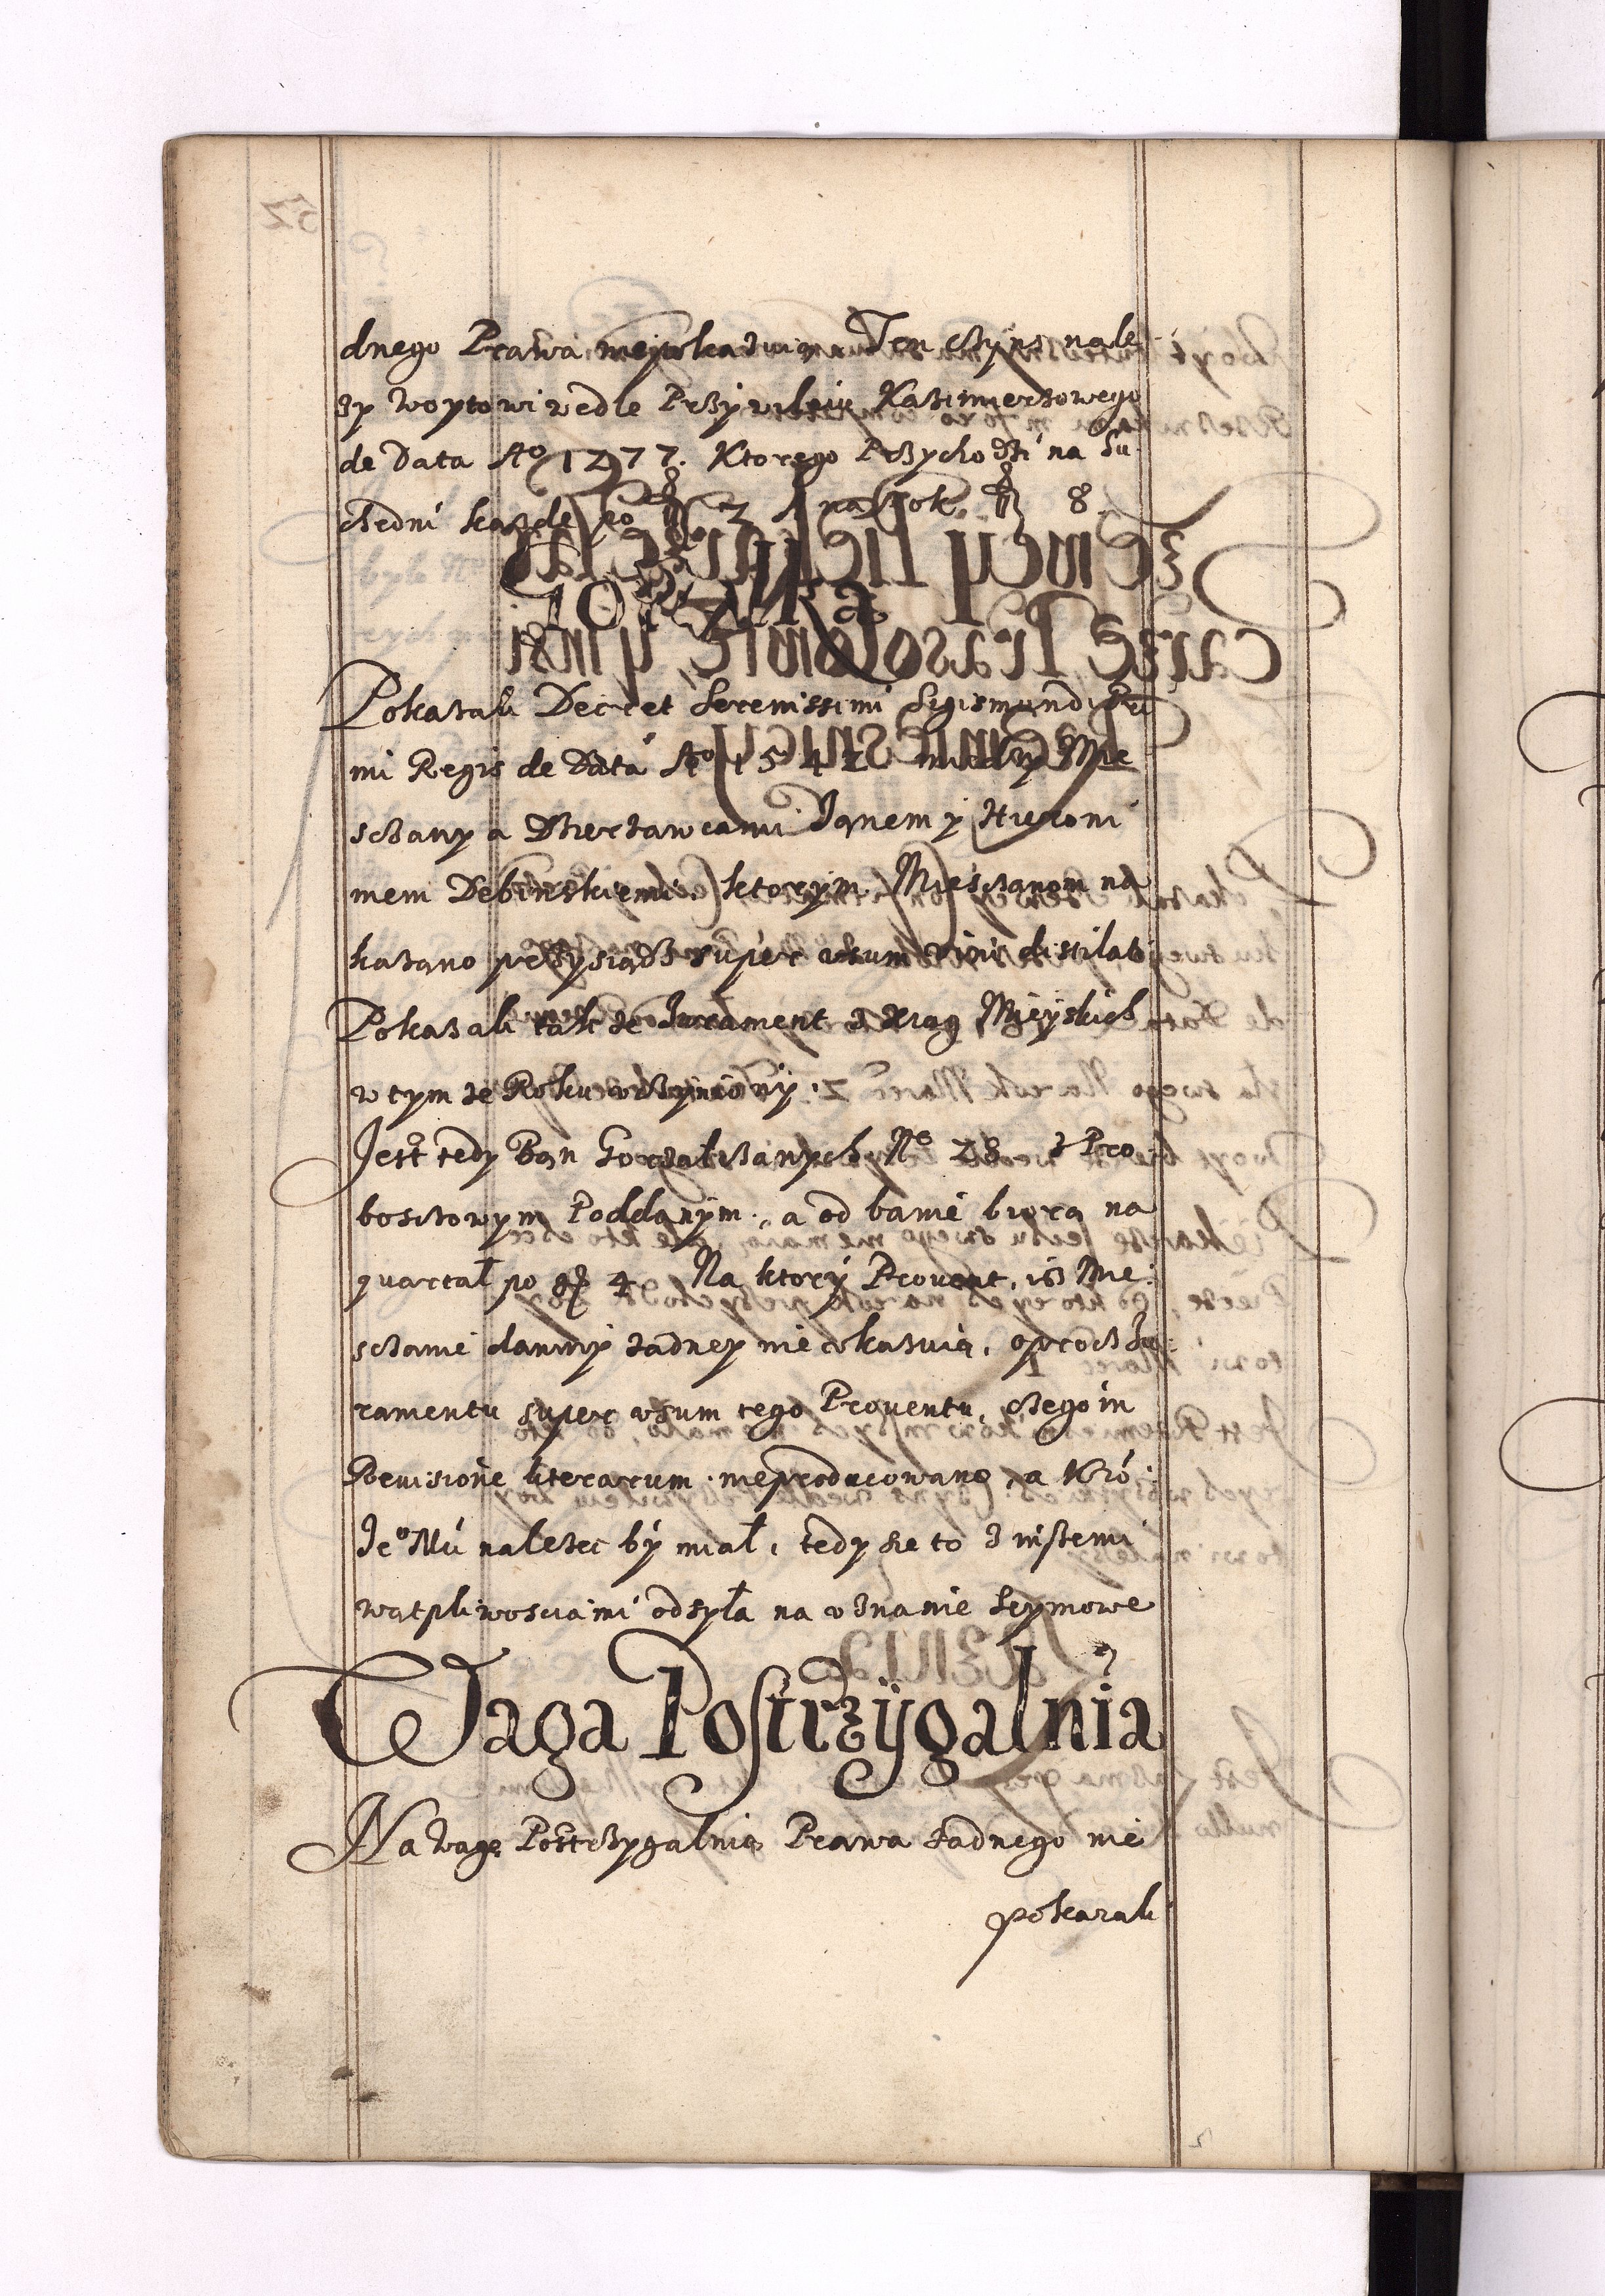 dnego Prawa niepokazuią Ten czÿns nale
zy woytowi wedle Przywileiu Kazimierzowego
de Data Aº 1377. Ktorego Przychodzi na Su
chedni kazde po g 2 A na Rok g 8
Gorzałka
Pokazali Decret Serenissimi Sigismundi Pri
mi Regis de Data Aº 154 miedzy Mie
sczany a Dzierzawcami Janem y Hieroni
mem Debinskiemi, ktorym Miesczanom na
kazano przysiądz super usum vini distilati
Pokazali takze Jurament z Xiąg Mieyskich
w tym ze Roku uczyniony.
Jest tedy Ban Gorzałczanych Nº 28 z Pro
bosczowym Poddanym, a od banie biorą na
quartał po g 4 Na ktory Provent, iz Mie
sczanie daniny zadney nie okazuią, oprocz Ju
ramentu super usum tego Proventu, czego in
Revisione literarum nieproducowano, a Kró
Jeº Mú nalezec bÿ miał, tedy sie to z inszemi
wątpliwosciami odsyła na uznanie Seymowe
Waga Postrzÿgalnia
Na wagę Postrzygalnią Prawa zadnego nie
pokazali